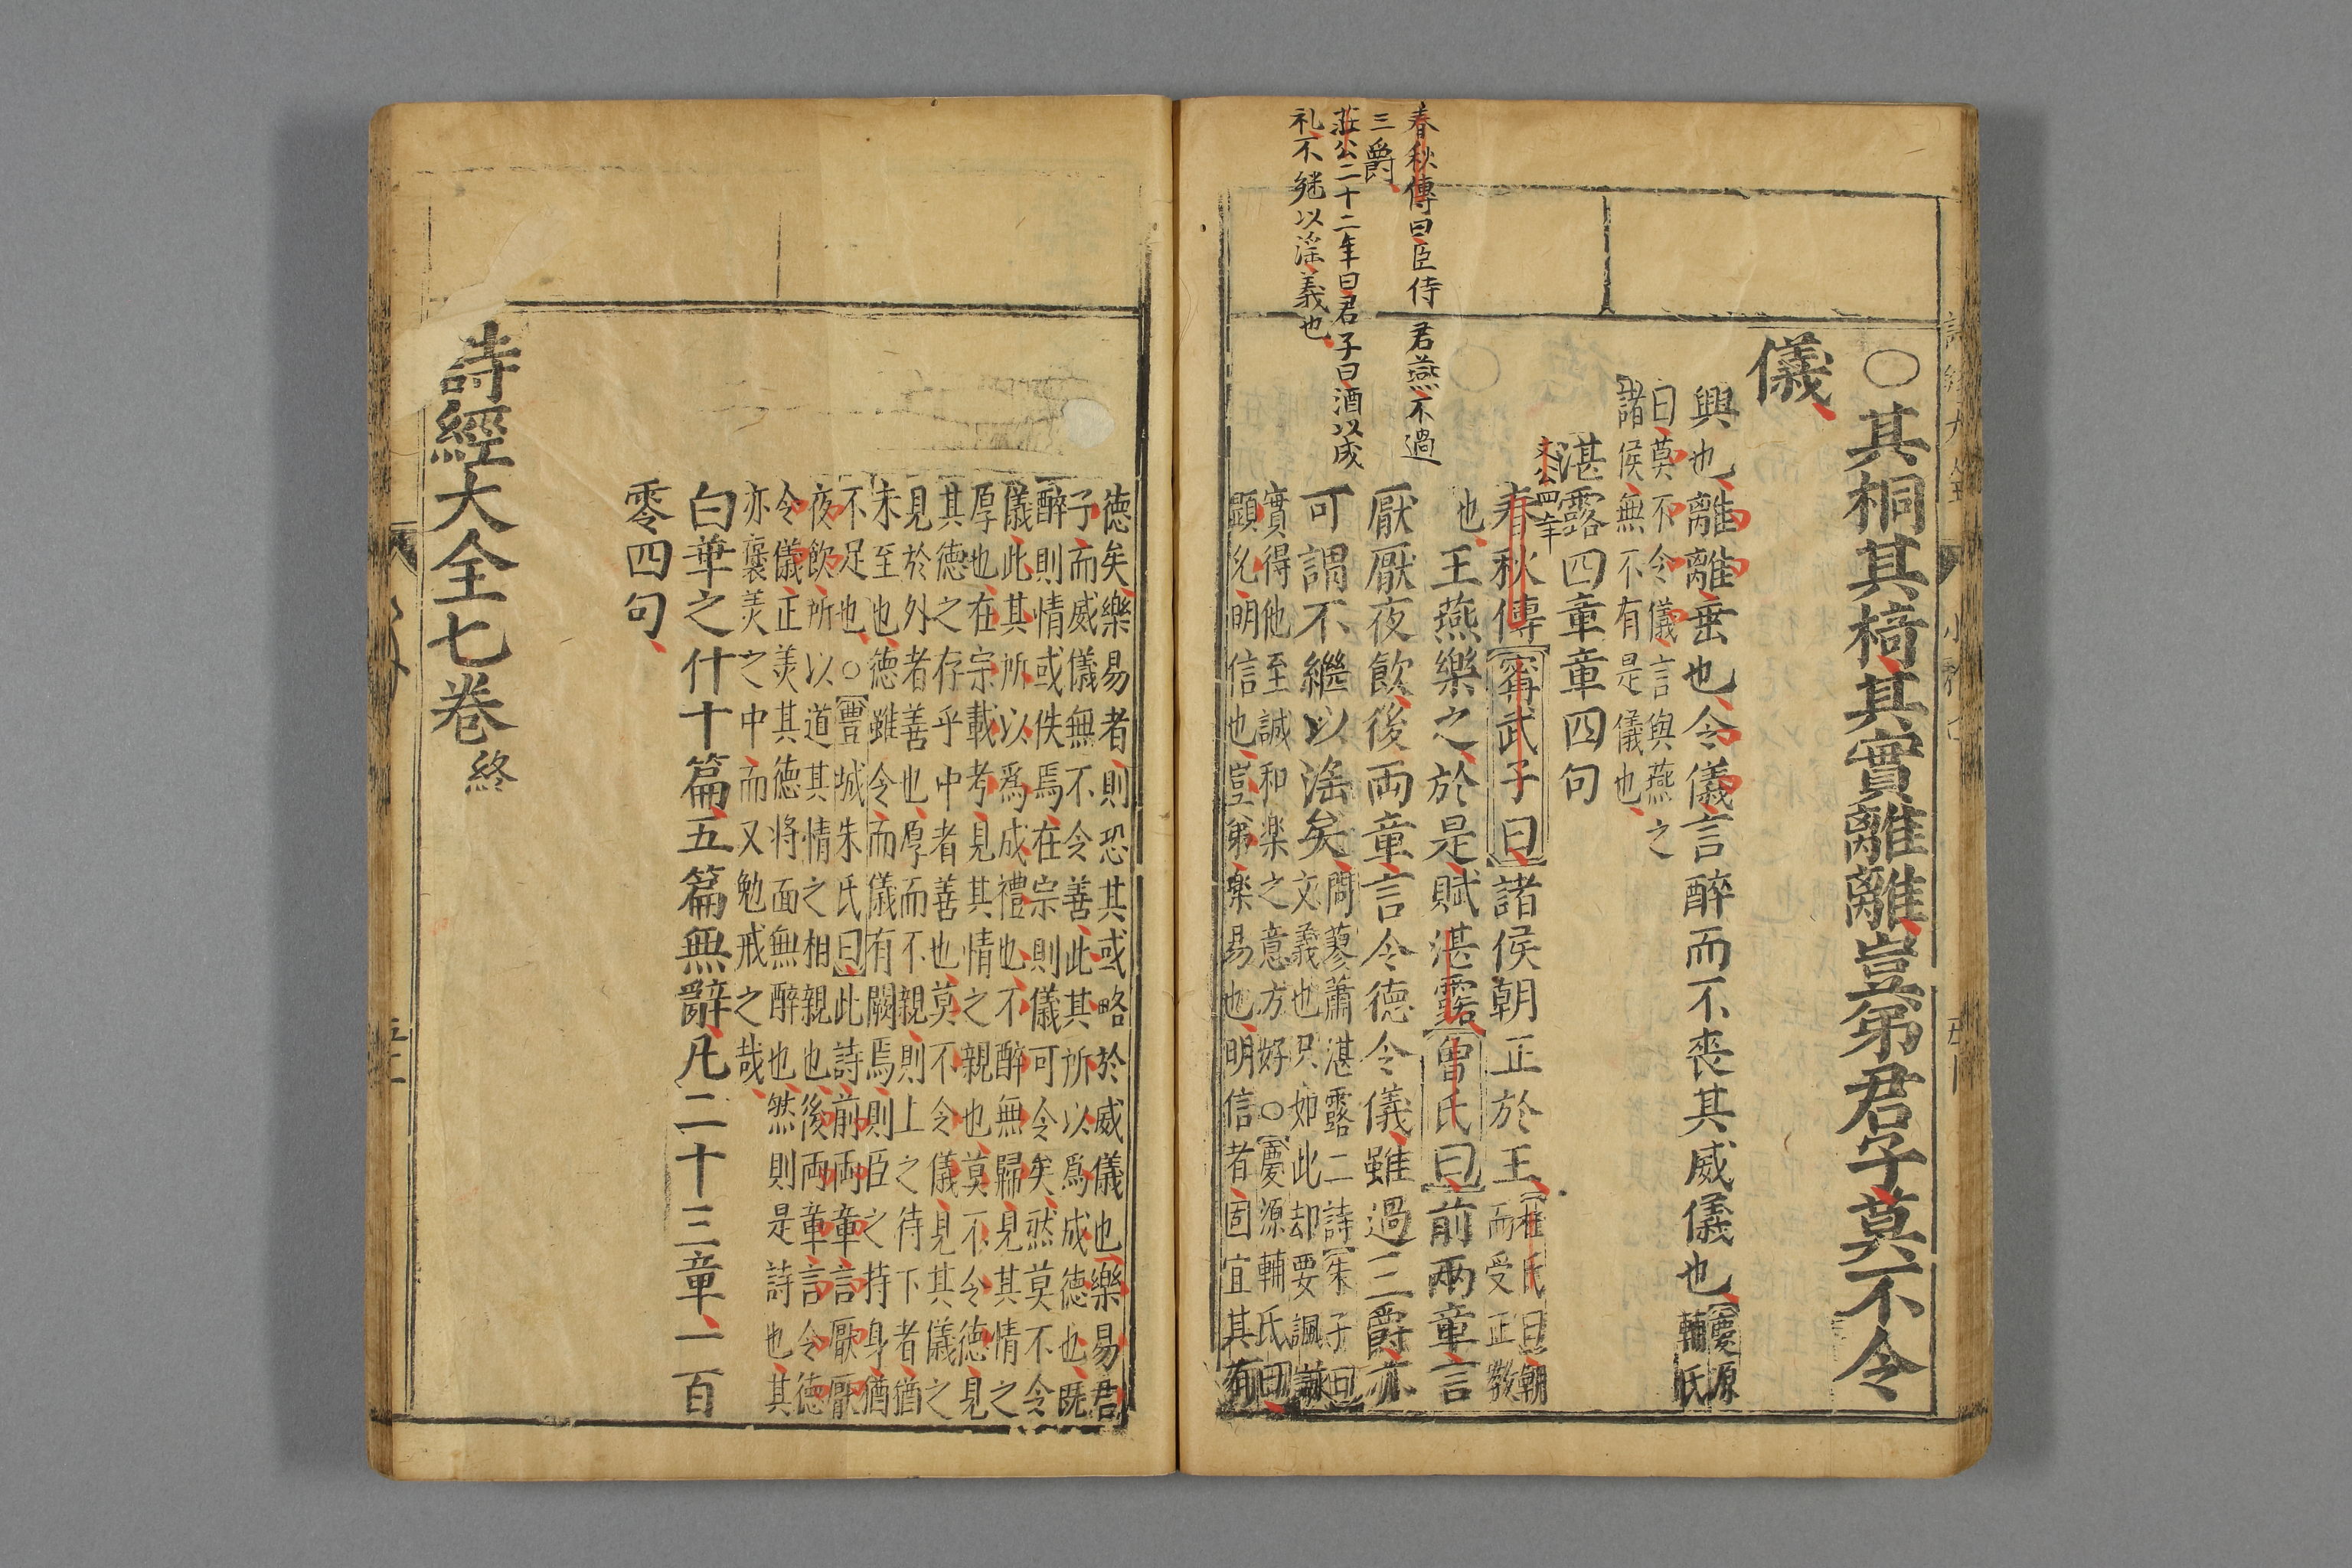 春秋傳曰臣侍君燕不過
三爵
莊公二十二年曰君子曰酒以成
礼不継以滛義也
○其桐其椅其實離離豈弟君子莫不令
儀
興也離離垂也令儀言醉而不喪其威儀也慶源
輔氏
曰莫不令儀言與燕之
諸侯無不有是儀也
湛露四章章四句
文公四年
春秋傳寗武子曰諸侯朝正於王杜氏曰朝
而受正教
也王燕樂之於是賦湛露曾氏曰前兩章言
厭厭夜飲後両章言令德令儀雖過三爵亦
可謂不繼以滛矣問蓼蕭湛露二詩朱子曰
文義也只如此却要諷詠
實得他至誠和楽之意方好○慶源輔氏曰
顯允明信也豈弟楽易也明信者固宜其有
德矣樂易者則恐其或略於威儀也樂易君
子而威儀無不令善此其所以爲成德也既
醉則情或佚焉在宗則儀可令矣然莫不令
儀此其所以爲成禮也不醉無歸見其情之
厚也在宗載考見其情之親也莫不令德見
其德之存乎中者善也莫不令儀見其儀之
見於外者善也厚而不親則上之待下者猶
未至也德雖令而儀有闕焉則臣之持身猶
不足也○豊城朱氏曰此詩前両章言厭厭
夜飲所以道其情之相親也後両章言令德
令儀正羙其德将面無醉也然則是詩也其
亦褒羙之中而又勉戒之哉
白華之什十篇五篇無辭凡二十三章一百
零四句
詩經大全七卷終